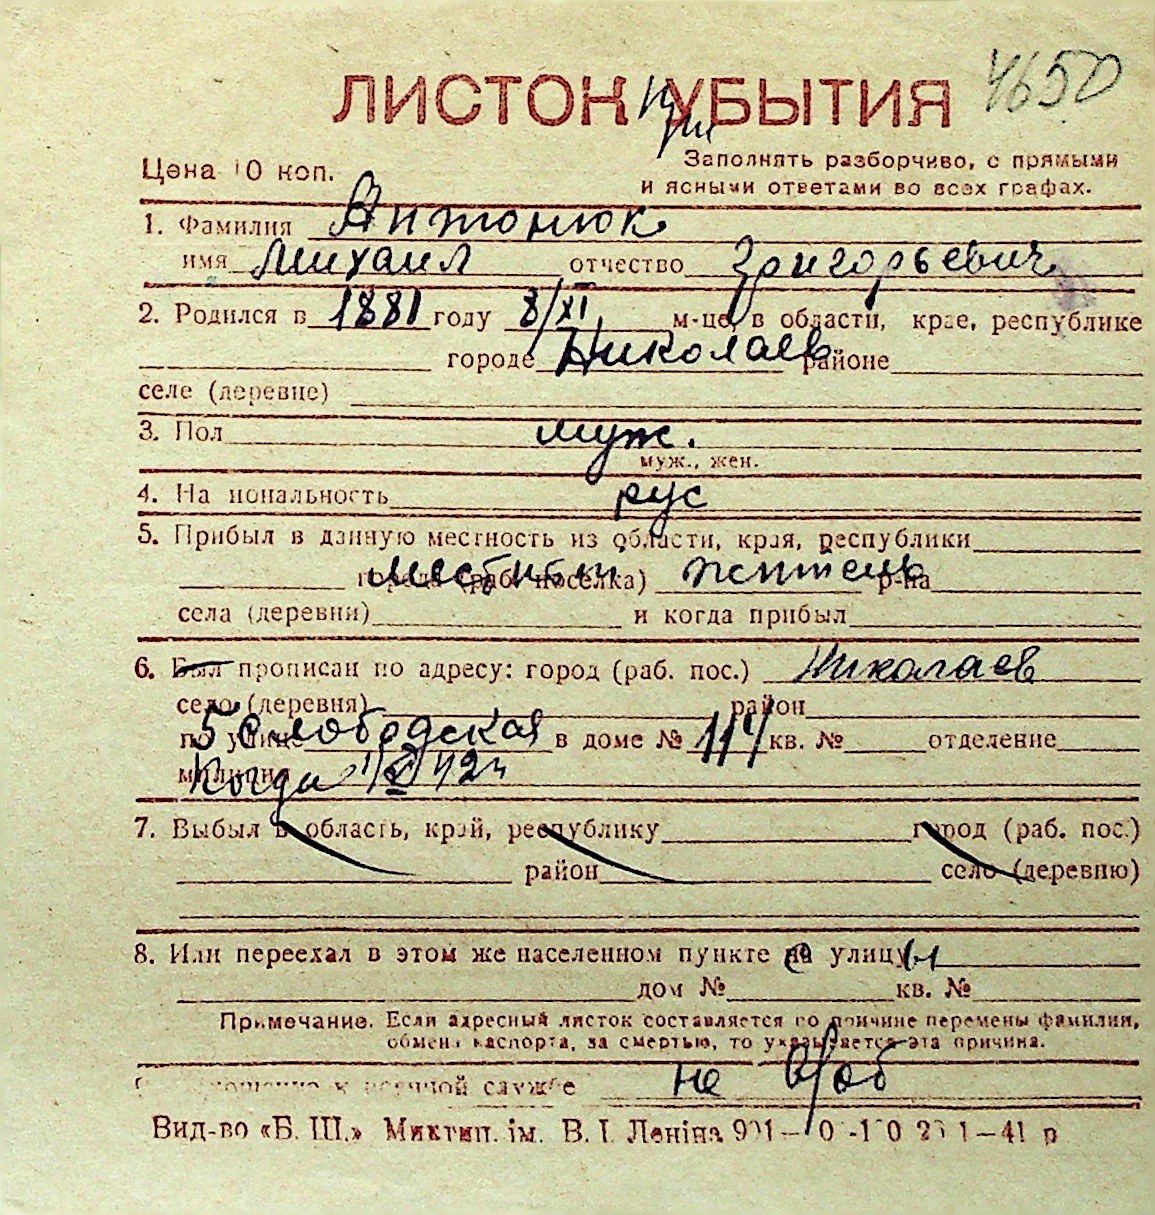 4650
ЛИСТОК УБЫТИЯ
Цена 10 коп.
Заполнять разборчиво, с прямыми
и ясными ответами во всех графах.
1. Фамилия Антонюк
имя Михаил отчество Григорьевич
2. Родился в 1881 году 8/XI м-це, в области, крае, республике
городе Николаев районе
селе (деревне)
3. Пол муж.
муж., жен.
4. Национальность рус
5. Прибыл в данную местность из области, края, республики
города (раб. поселка) местный житель р-на
села (деревни) и когда прибыл
6. Был прописан по адресу: город (раб. пос.) Николаев
село (деревня) район
по улице 5 Слободская в доме № 114 кв. № отделение
милиции Когда
7. Выбыл в область, край, республику город (раб. пос.)
район село (деревню)
8. Или переехал в этом же населенном пункте на улицу
дом № кв. №
Примечание. Если адресный листок составляется по причине перемены фамилии,
обмена паспорта, за смертью, то указывается эта причина.
отношение к военной службе не в/об
Вид-во «Б. Ш.» Миктип. ім. В. І. Леніна